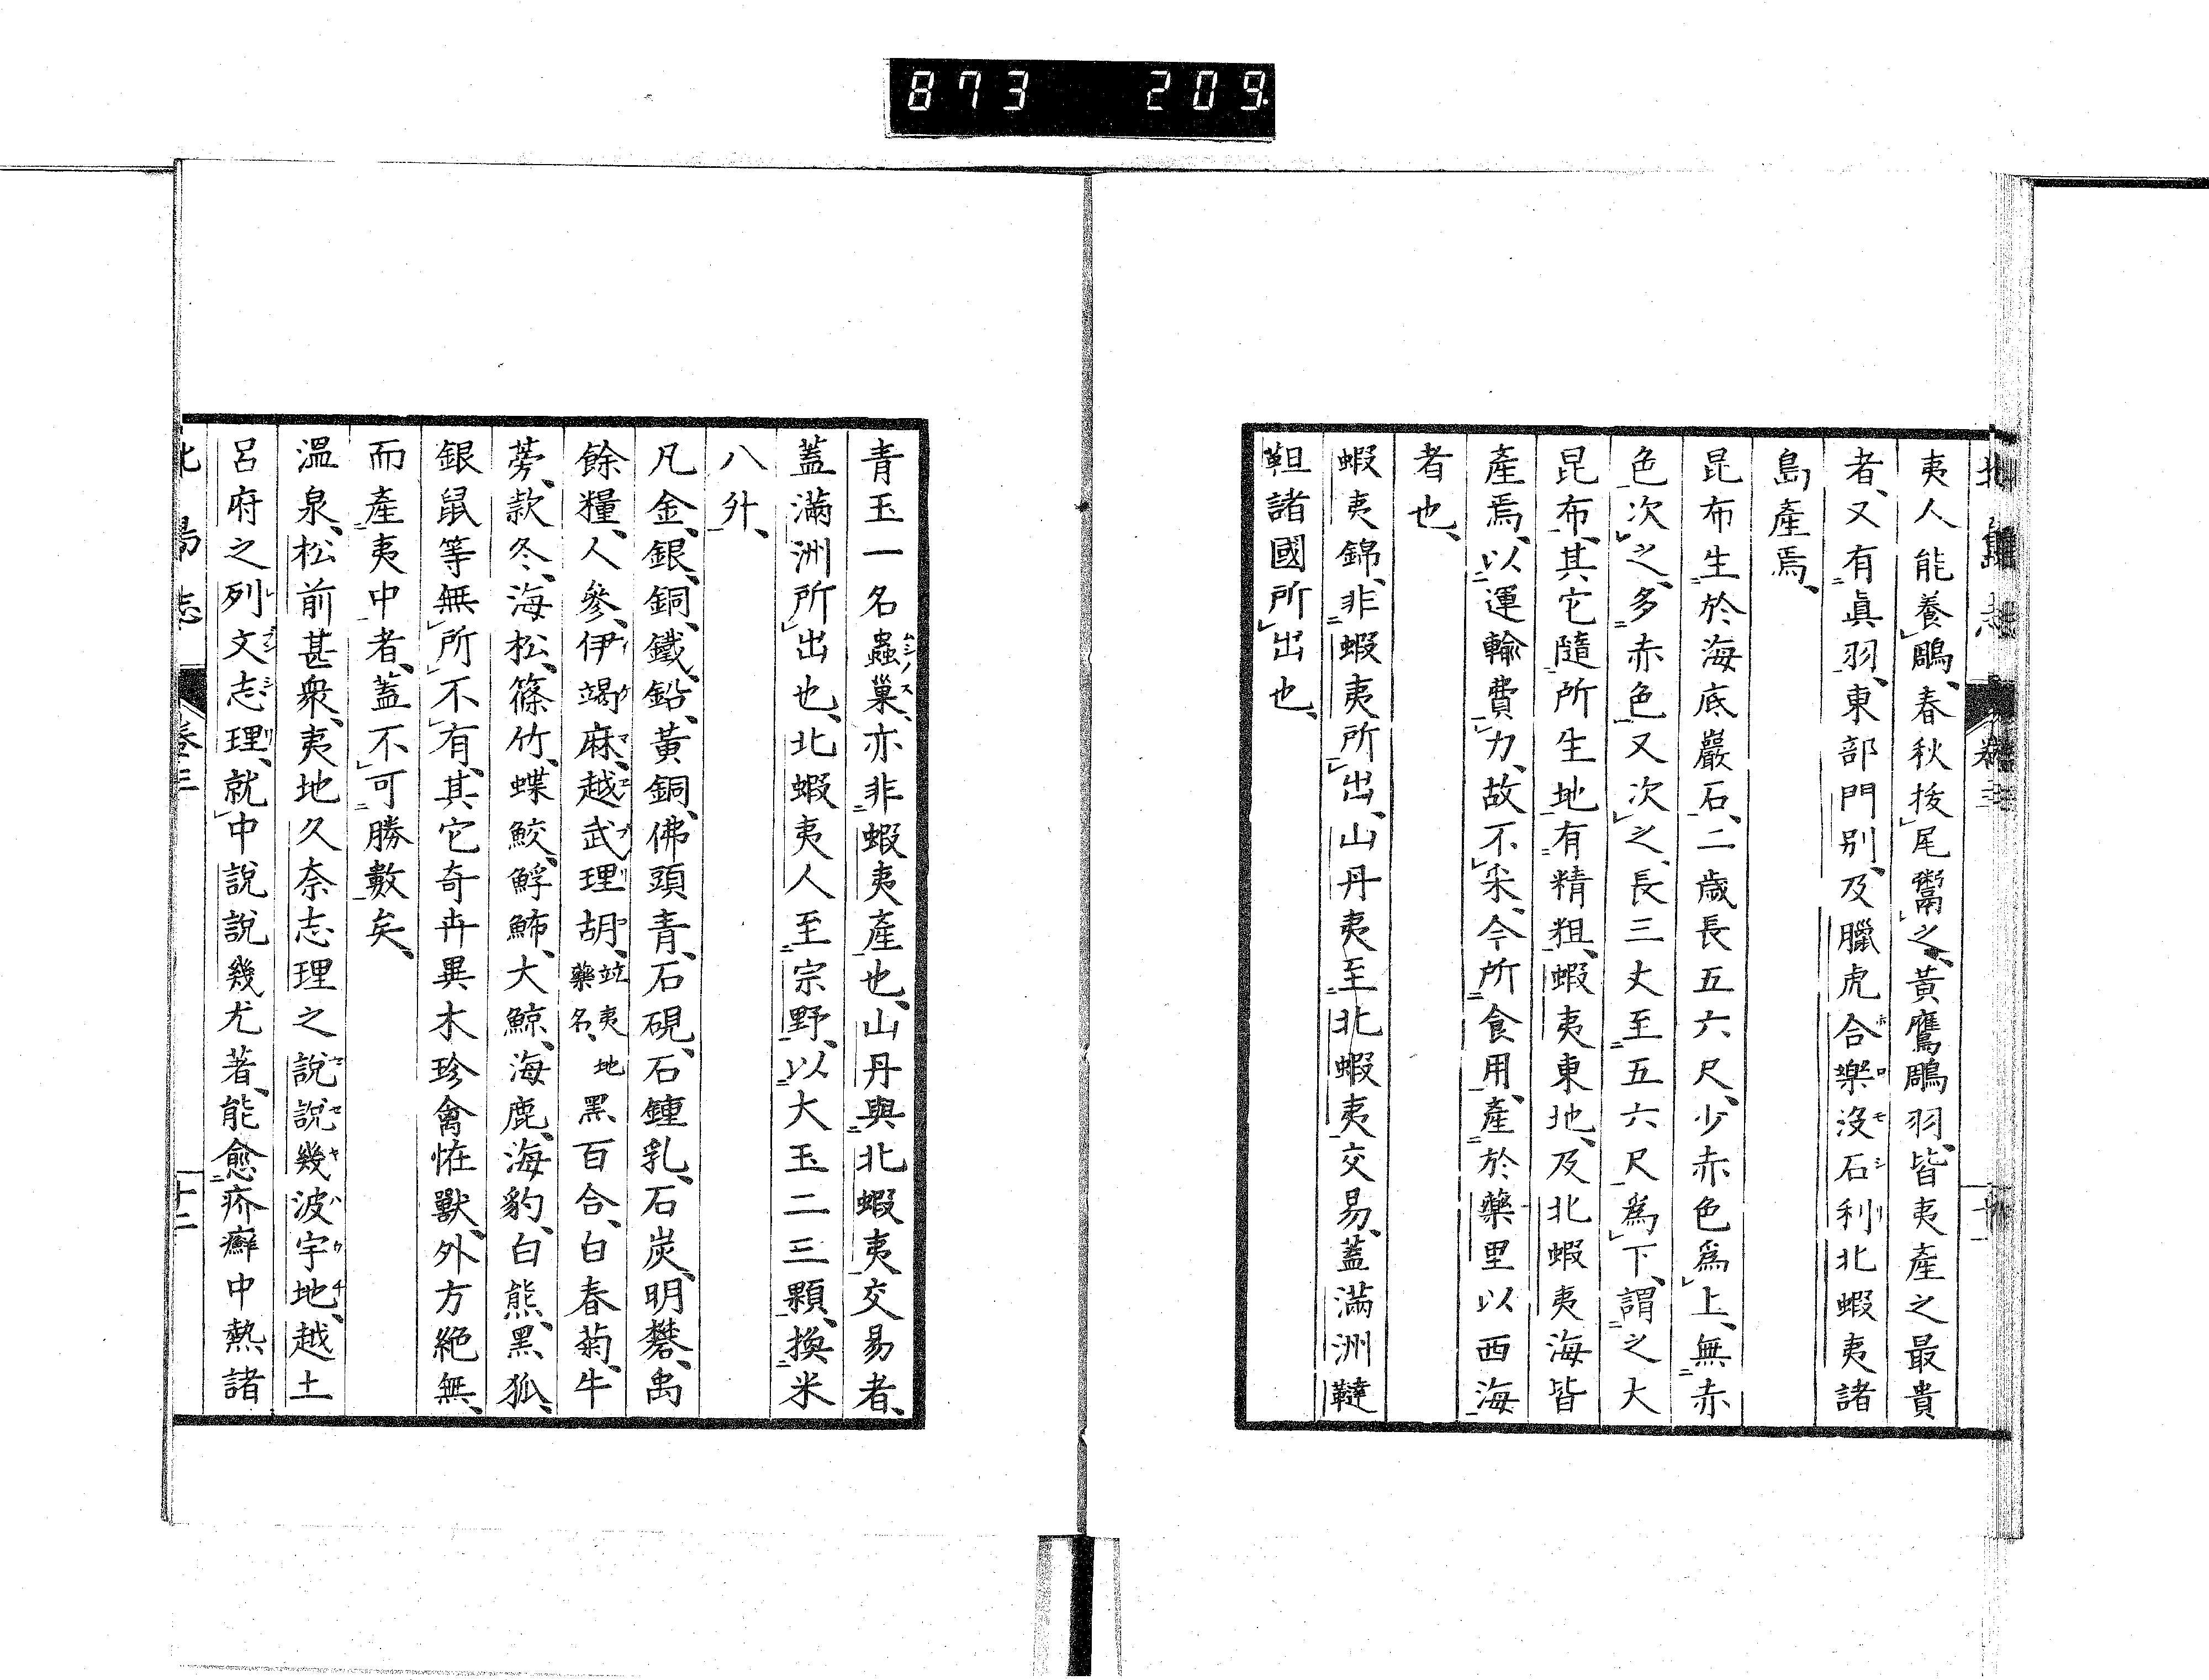 873 209
北島志 卷三
夷人能養鵰、春秋拔尾鬻之、黃鷹鵰羽、皆夷產之最貴
者、又有眞羽、東部門別、及臘虎合樂沒石利北蝦夷諸
島產焉、
昆布生於海底巖石、二歲長五六尺、少赤色爲上、無赤
色次之、多赤色又次之、長三丈至五六尺爲下、謂之大
昆布、其它隨所生地有精粗、蝦夷東地、及北蝦夷海皆
產焉、以運輸費力、故不采、今所食用、產於藥里以西海
者也、
蝦夷錦、非蝦夷所出、山丹夷至北蝦夷交易、蓋滿洲韃
靼諸國所出也、
青玉一名蟲巢、亦非蝦夷產也、山丹與北蝦夷交易者、
蓋滿洲所出也、北蝦夷人至宗野、以大玉二三顆、換米
八升、
凡金、銀、銅、鐵、鉛、黃銅、佛頭青、石硯、石鍾乳、石炭、明礬、禹
餘糧、人參、伊竭麻、越武理胡、竝夷地藥名、黑百合、白春菊、牛
蒡、款冬、海松、篠竹、蝶鮫、鯙鮪、大鯨、海鹿、海豹、白熊、黑狐、
銀鼠等無所不有、其它奇卉異木珍禽恠獸、外方絶無、
而產夷中者、蓋不可勝數矣、
溫泉、松前甚衆、夷地久奈志理之說說幾波宇地、越土
呂府之列文志理、就中說說幾尤著、能愈疥癬中熱諸
北島志 卷三 十二